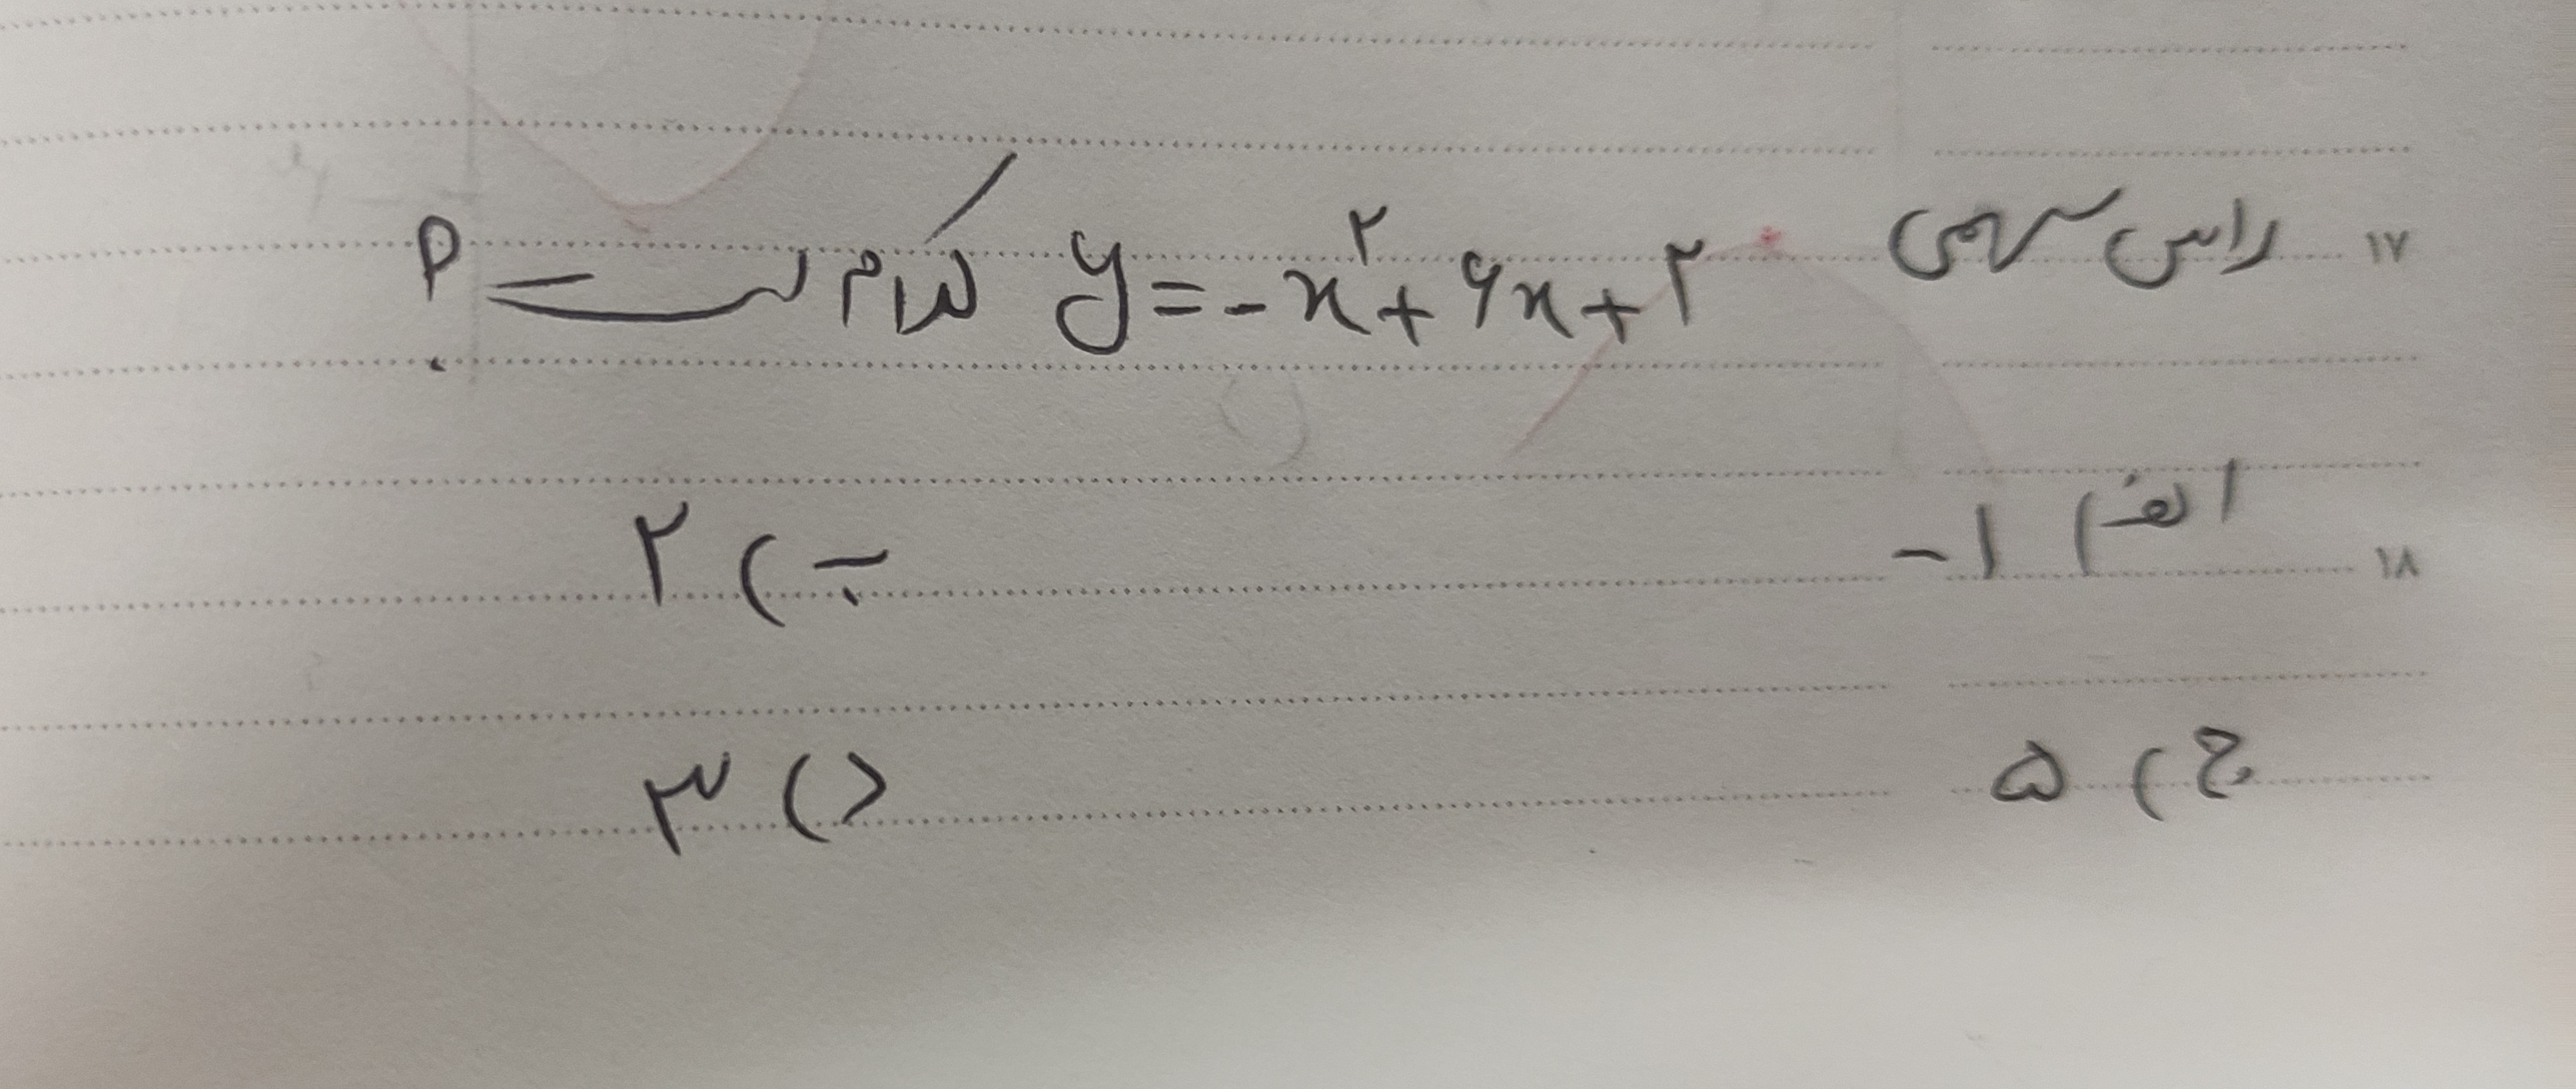 ۱۷ راس سهمی y = -x^۲ + ۶x + ۲ کدام است؟
۱۸ الف) ۱- ب) ۲
ج) ۵ د) ۳